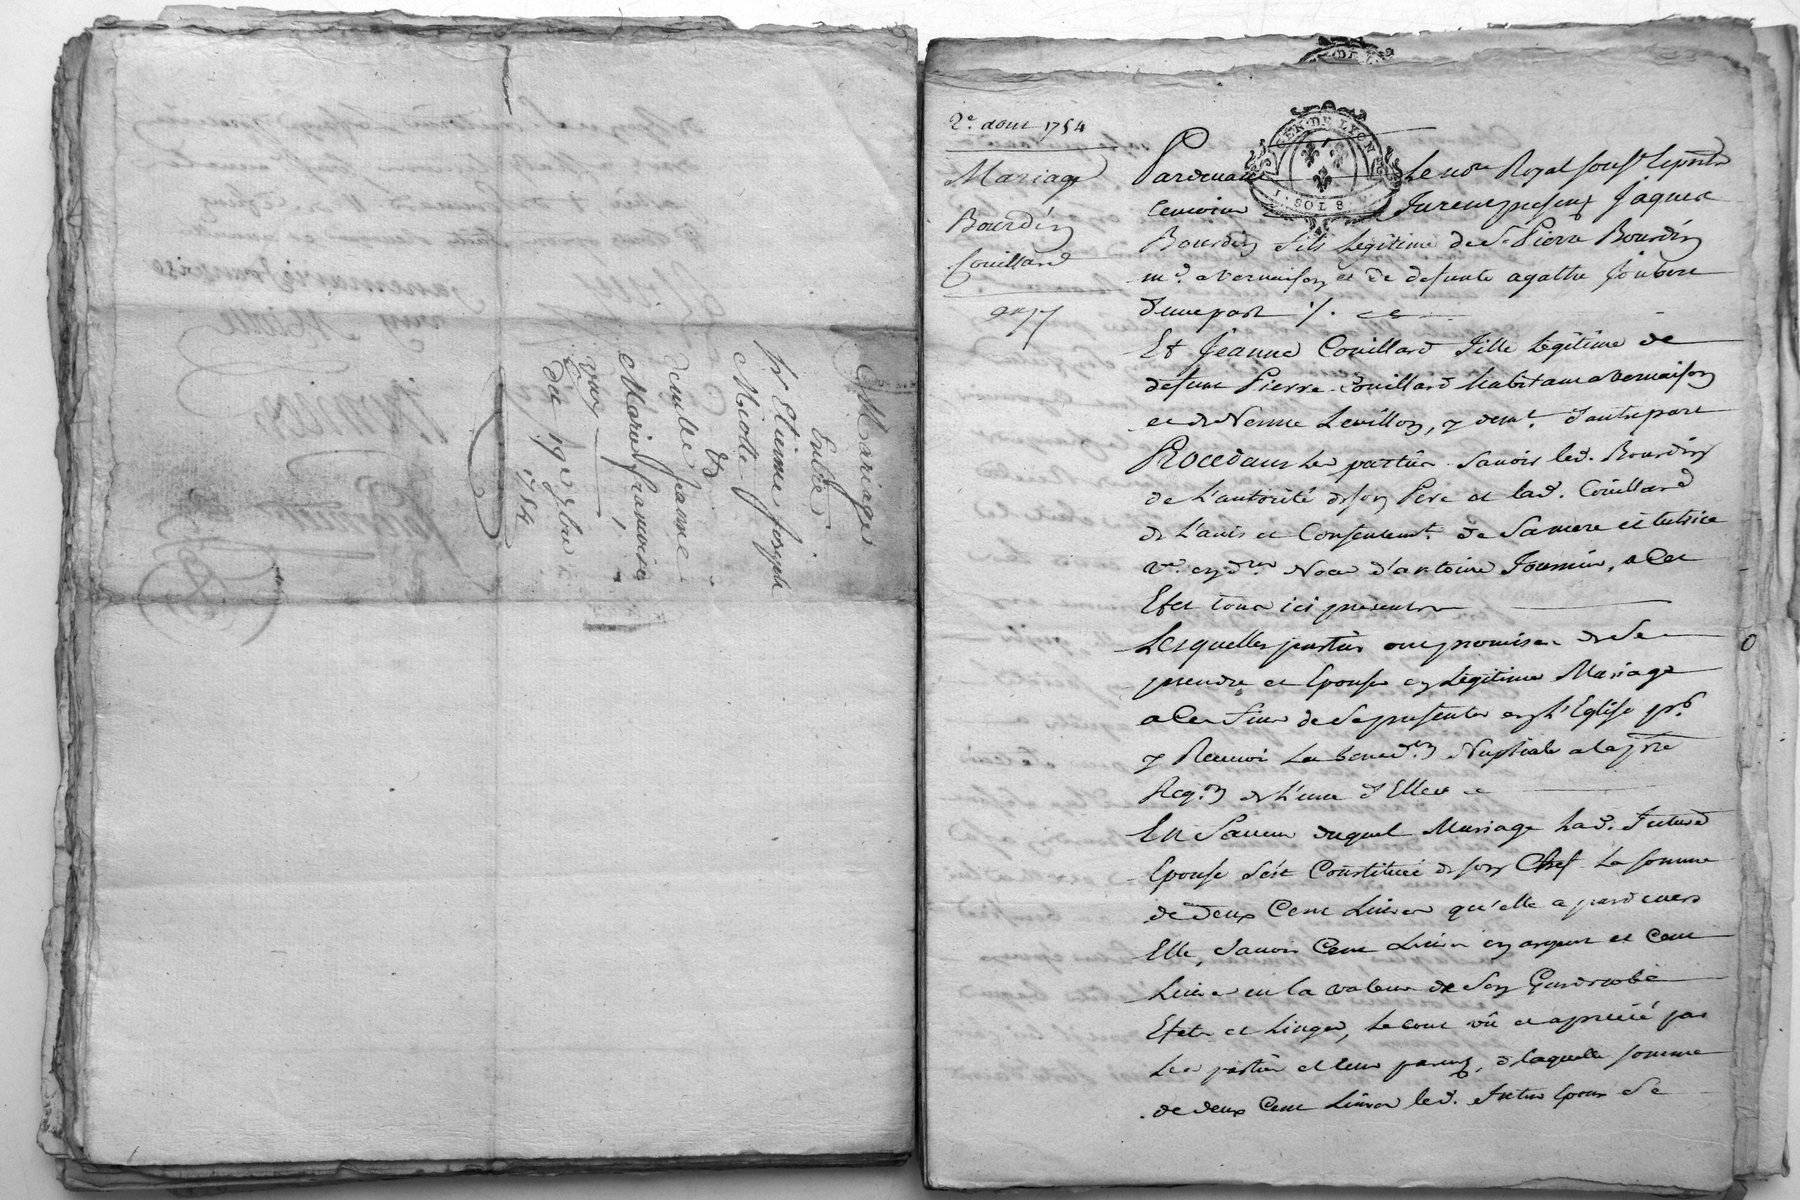 Mariage
Entre
Sr Etienne Joseph
Micolle
&
demlle Jeanne
Marie francoise
vuoy
du 19e 7bre
1754
2e. aout 1754
Mariage
Bourdin
Couillard
GEN. DE LYON
1. SOL 8.
Pardevant Le nore Royal sousse. & presents
temoins furent presens Jaques
Bourdin fils legitime de Sr Pierre Bourdin
md. a vernaison et de defunte agathe Joubert
d'une part /.
Et Jeanne Couillard fille legitime de
defunt Pierre Couillard habitant a vernaison
et de Levillon, y demt. d'autre part
Procedants les parties savoir led. Bourdin
de l'autorité de son Pere et lad. Couillard
de l'avis et Consentemt. de Sa mere et tutrice
ve. en dres Noces d'antoine, a cet
Efet tous ici presents
Lesquelles parties ont promises de Se
prendre et Epouser en legitime Mariage
a Ces fins de Se presenter en L'Eglise pr.
y Recevoir La bened.on Nuptiale a la pre
Reqon de L'une d'Elles
En faveur duquel Mariage Lad. future
Epouse S'est Constituée de son Chef La somme
de deux Cent Livres qu'elle a pardevers
Elle, Savoir Cent Livres en argent et Cent
Livres en la valeur de Son Garderobe
Efets et Linges, Le tout vû et aprecié par
Les parties et leurs parens, de laquelle somme
de deux Cent Livres led. futur Epoux Se